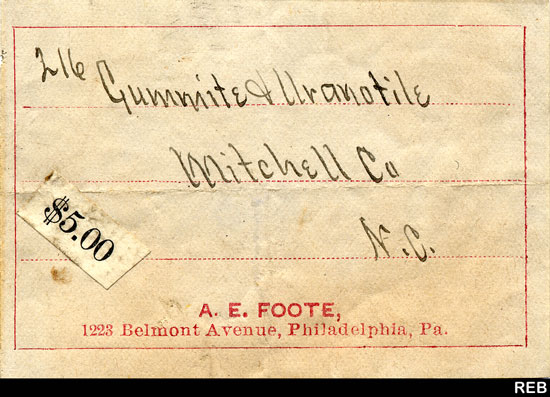 216 Gummite & Uranotile
Mitchell Co
N.C.
$5.00
A. E. FOOTE,
1223 Belmont Avenue, Philadelphia, Pa.
REB